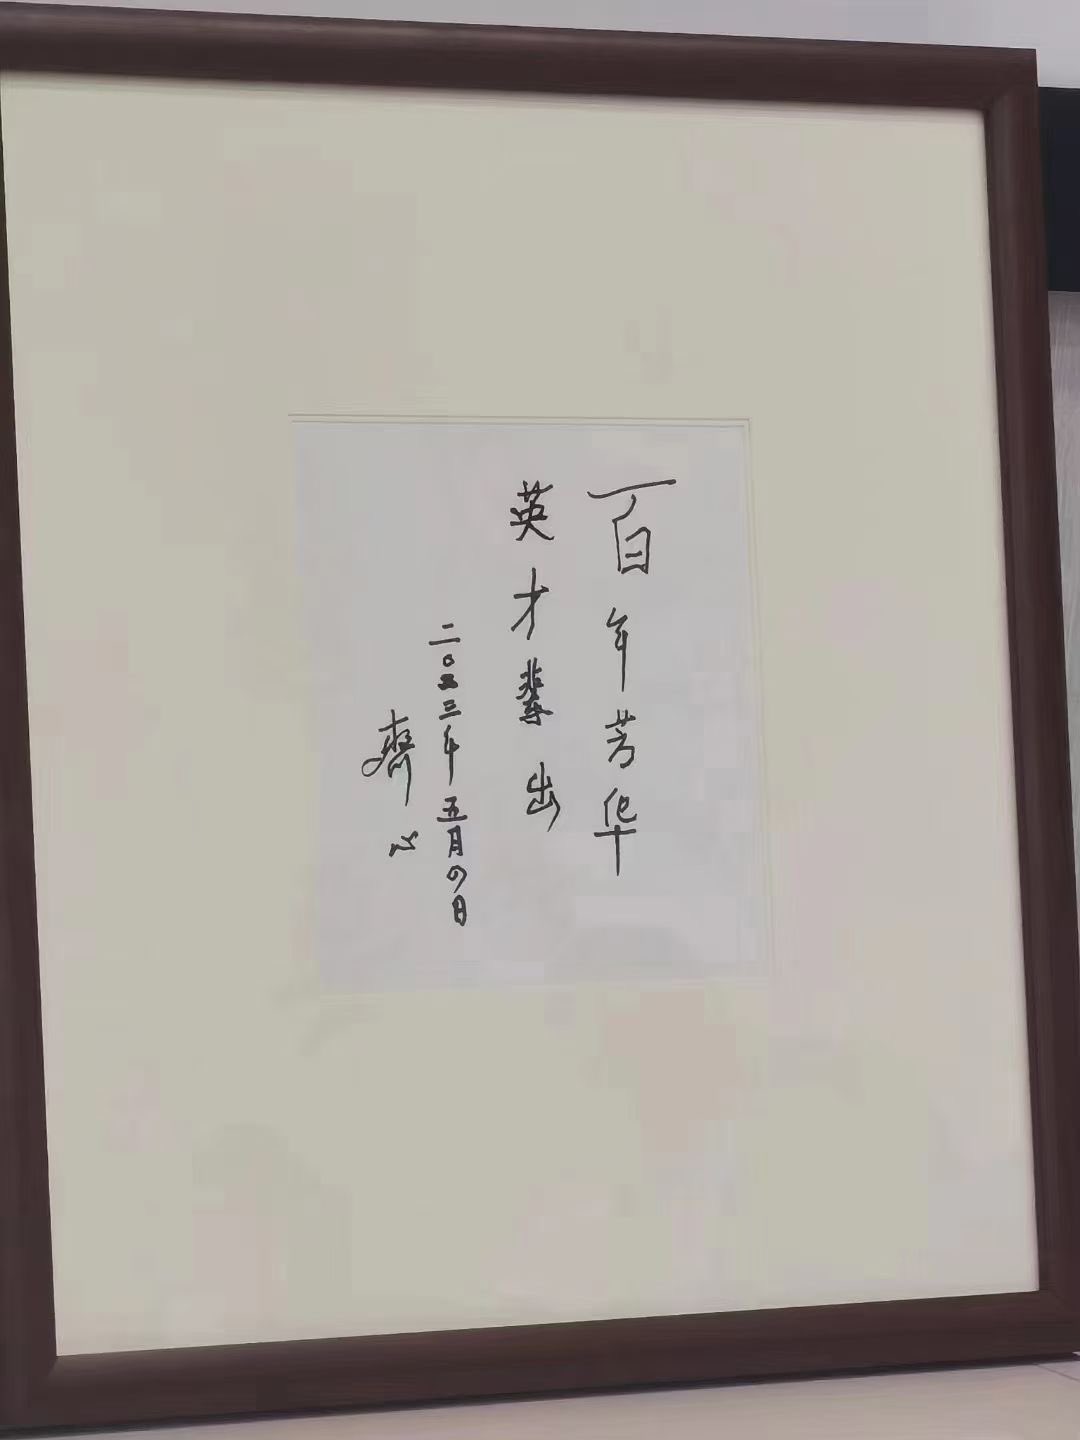 百年芳华
英才辈出
二〇二三年五月四日
齊心